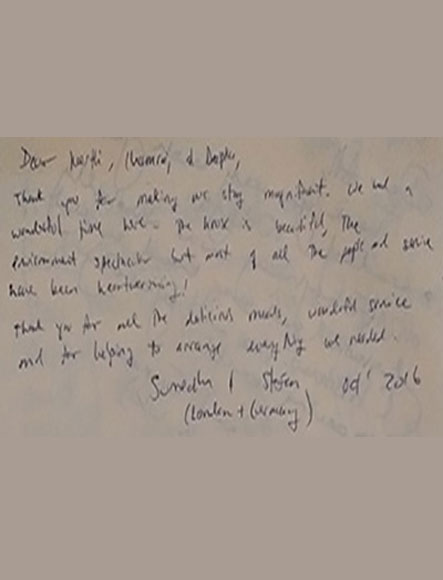 Dear
Thank you for making our stay magnificent. We had a
wonderful time here. The house is beautiful, The
environment spectacular but most of all the people and service
have been heartwarming!
Thank you for all the delicious meals, wonderful service
and for helping to arrange everything we needed.
Stefan Oct' 2016
(London + Germany)